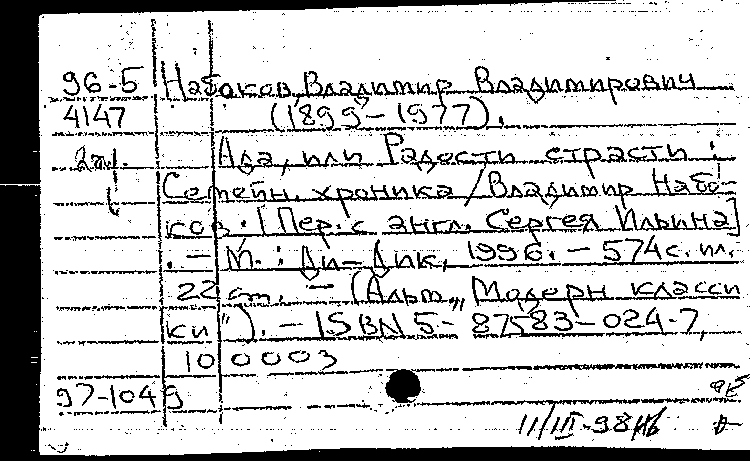 96-5 Набоков, Владимир Владимирович
4147 (1899-1977).
Ада, или Радости страсти :
Семейн. хроника / Владимир Набо-
ков. [Пер. с англ. Сергея Ильина]
. - М. : Ди-Дик, 1996. - 574 с. ил.
22 см. - (Альт „Модерн класси
ки"). - ISBN 5-87583-024-7,
10 0003
97-1049
11/III-98